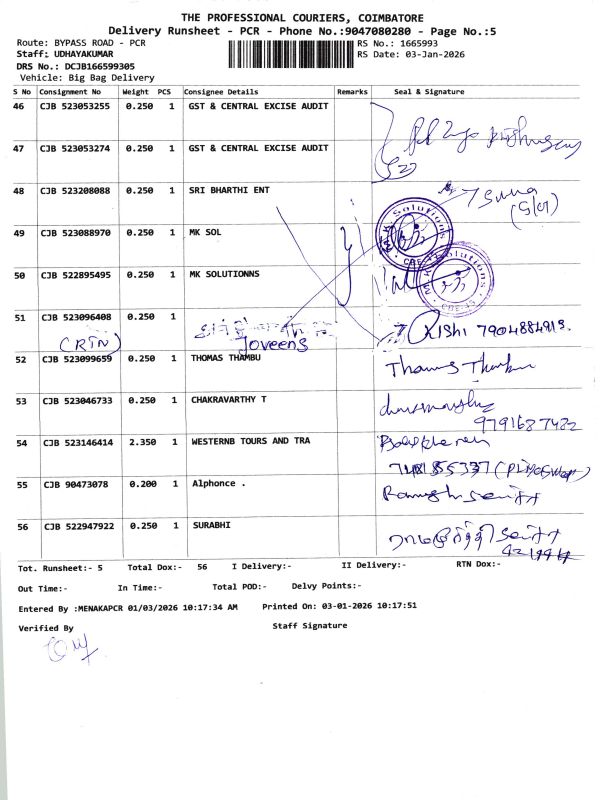 THE PROFESSIONAL COURIERS, COIMBATORE
Delivery Runsheet - PCR - Phone No.:9047080280 - Page No.:5
Route: BYPASS ROAD - PCR
RS No.: 1665993
Staff: UDHAYAKUMAR
RS Date: 03-Jan-2026
DRS No.: DCJB166599305
Vehicle: Big Bag Delivery
S No Consignment No Weight PCS Consignee Details Remarks Seal & Signature
46 CJB 523053255 0.250 1 GST & CENTRAL EXCISE AUDIT
47 CJB 523053274 0.250 1 GST & CENTRAL EXCISE AUDIT
48 CJB 523208088 0.250 1 SRI BHARTHI ENT
49 CJB 523088970 0.250 1 MK SOL
50 CJB 522895495 0.250 1 MK SOLUTIONNS
51 CJB 523096408 0.250 1
(RTN) Joveens Rishi 7904884913.
52 CJB 523099659 0.250 1 THOMAS THAMBU
Thomas Thambu
53 CJB 523046733 0.250 1 CHAKRAVARTHY T
9791687422
54 CJB 523146414 2.350 1 WESTERNB TOURS AND TRA
55 CJB 90473078 0.200 1 Alphonce .
56 CJB 522947922 0.250 1 SURABHI
Tot. Runsheet:- 5 Total Dox:- 56 I Delivery:- II Delivery:- RTN Dox:-
Out Time:- In Time:- Total POD:- Delvy Points:-
Entered By :MENAKAPCR 01/03/2026 10:17:34 AM Printed On: 03-01-2026 10:17:51
Verified By Staff Signature